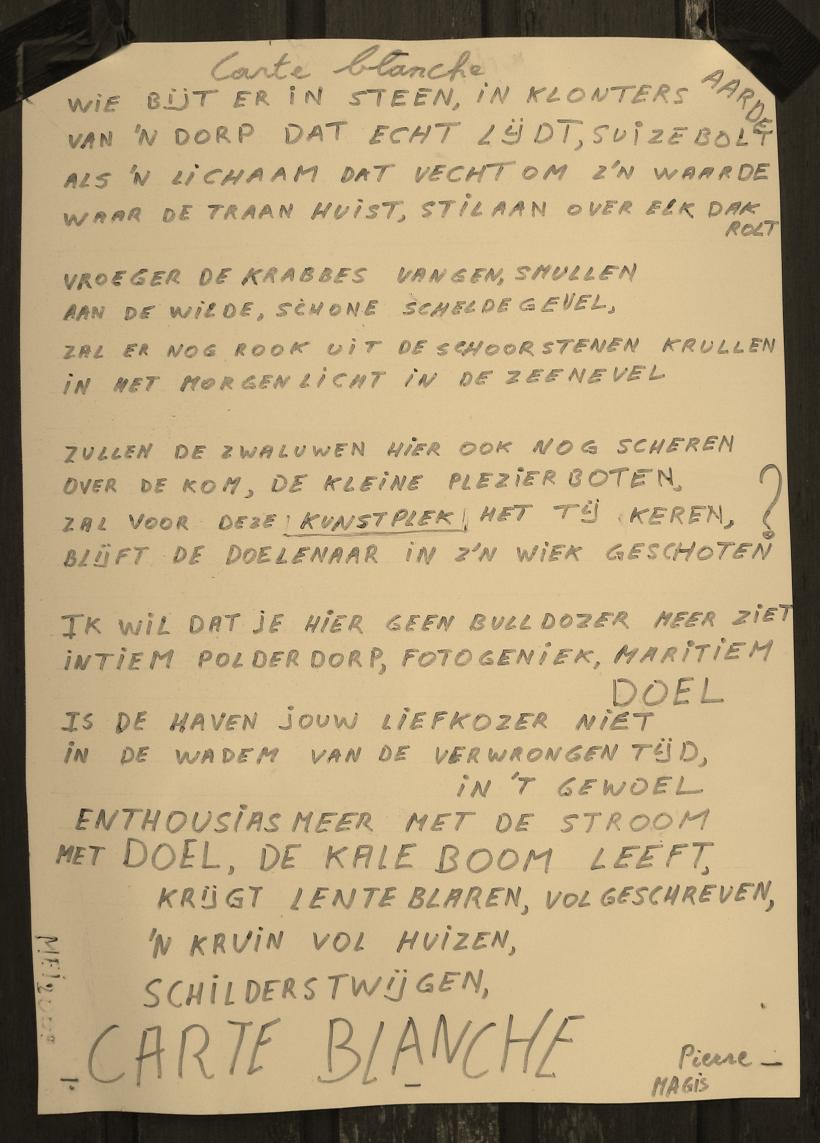 Carte blanche
WIE BIJT ER IN STEEN, IN KLONTERS AARDE
VAN 'N DORP DAT ECHT LIJDT, SUIZEBOLT
ALS 'N LICHAAM DAT VECHT OM Z'N WAARDE
WAAR DE TRAAN HUIST, STILAAN OVER ELK DAK
ROLT
VROEGER DE KRABBES VANGEN, SMULLEN
AAN DE WILDE, SCHONE SCHELDEGEVEL,
ZAL ER NOG ROOK UIT DE SCHOORSTENEN KRULLEN
IN HET MORGENLICHT IN DE ZEENEVEL
ZULLEN DE ZWALUWEN HIER OOK NOG SCHEREN
OVER DE KOM, DE KLEINE PLEZIERBOTEN,
ZAL VOOR DEZE KUNSTPLEK HET TIJ KEREN, ?
BLIJFT DE DOELENAAR IN Z'N WIEK GESCHOTEN
IK WIL DAT JE HIER GEEN BULLDOZER MEER ZIET
INTIEM POLDERDORP, FOTOGENIEK, MARITIEM
DOEL
IS DE HAVEN JOUW LIEFKOZER NIET
IN DE WADEM VAN DE VERWRONGEN TIJD,
IN 'T GEWOEL
ENTHOUSIASMEER MET DE STROOM
MET DOEL, DE KALE BOOM LEEFT,
KRIJGT LENTEBLAREN, VOLGESCHREVEN,
'N KRUIN VOL HUIZEN,
SCHILDERSTWIJGEN,
CARTE BLANCHE
Pierre
MAGIS
MEI